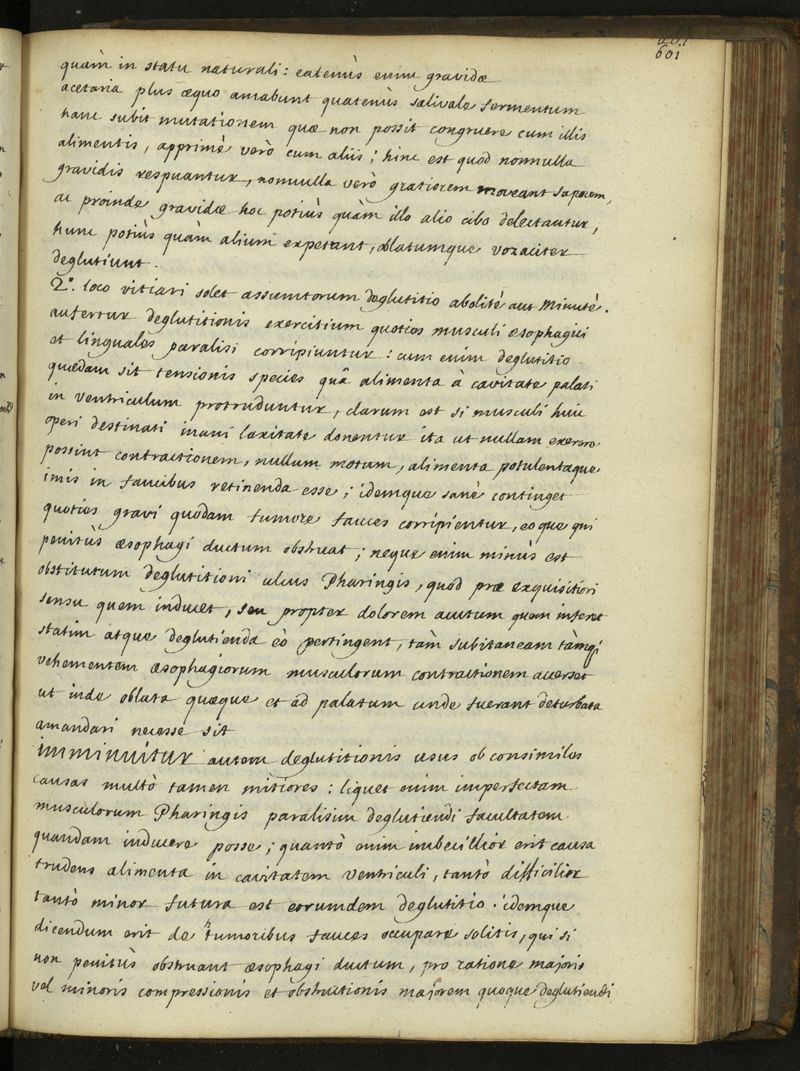 601
quàm in statu naturali : eatenùs enim gravidæ
acetaria plus æquo amabunt quatenùs salivale fermentum
hanc subit mutationem quæ non possit congruere cum illis
alimentis, apprimè verò cum aliis ; hinc est quod nonnulla
gravidis respuantur, nonnulla verò gratiorem moveant saporem,
ac proinde gravidæ hoc potiùs quàm illo alio cibo delectantur,
hunc potiùs quàm alium expetant, oblatumque voraciter
deglutiunt.
2.° loco vitiari solet assumtorum deglutitio abolitè aut minutè.
aufertur deglutitionis exercitium quoties musculi æsophagici
et linguales paralisi corripiuntur : cum enim deglutitio
quædam sit tensionis species quâ alimenta à cavitate palati
in ventriculum protruduntur, clarum est si musculi huic
operi destinati inani laxitate donentur ita ut nullam exerere
possint contractionem, nullum motum, alimenta potulentaque
imis in faucibus retinenda esse ; idemque sanè continget
quoties gravi quodam tumore fauces corripientur, eoque qui
penitùs æsophagi ductum obstruat ; neque enim minùs est
obstitutum deglutitioni ulcus Pharingis, quod præ exquisitiori
sensu quem inducet, seu propter dolorem acutum quem inferet
statim atque deglutienda eò pertingent, tàm subitaneam tàmq;
vehementem æsophagiorum musculorum contractionem accerset
ut inde oblata quæque et ad palatum unde fuerant deturbata
amandari necesse sit
imminuitur autem deglutitionis usus ob consimiles
causas multò tamen mitiores : liquet enim imperfectam
musculorum Pharingis paralisim deglutiendi facultatem
quandam inducere posse ; quantò enim imbecillior erit causa
trudens alimenta in cavitatem ventriculi, tantò difficilior
tantò minor futura est eorumdem deglutitio. idemque
dicendum erit de tumoribus fauces occupare solitis, qui si
non penitùs obstruant æsophagi ductum, pro ratione majoris
vel minoris compressionis et obstructionis majorem quoque deglutiendi